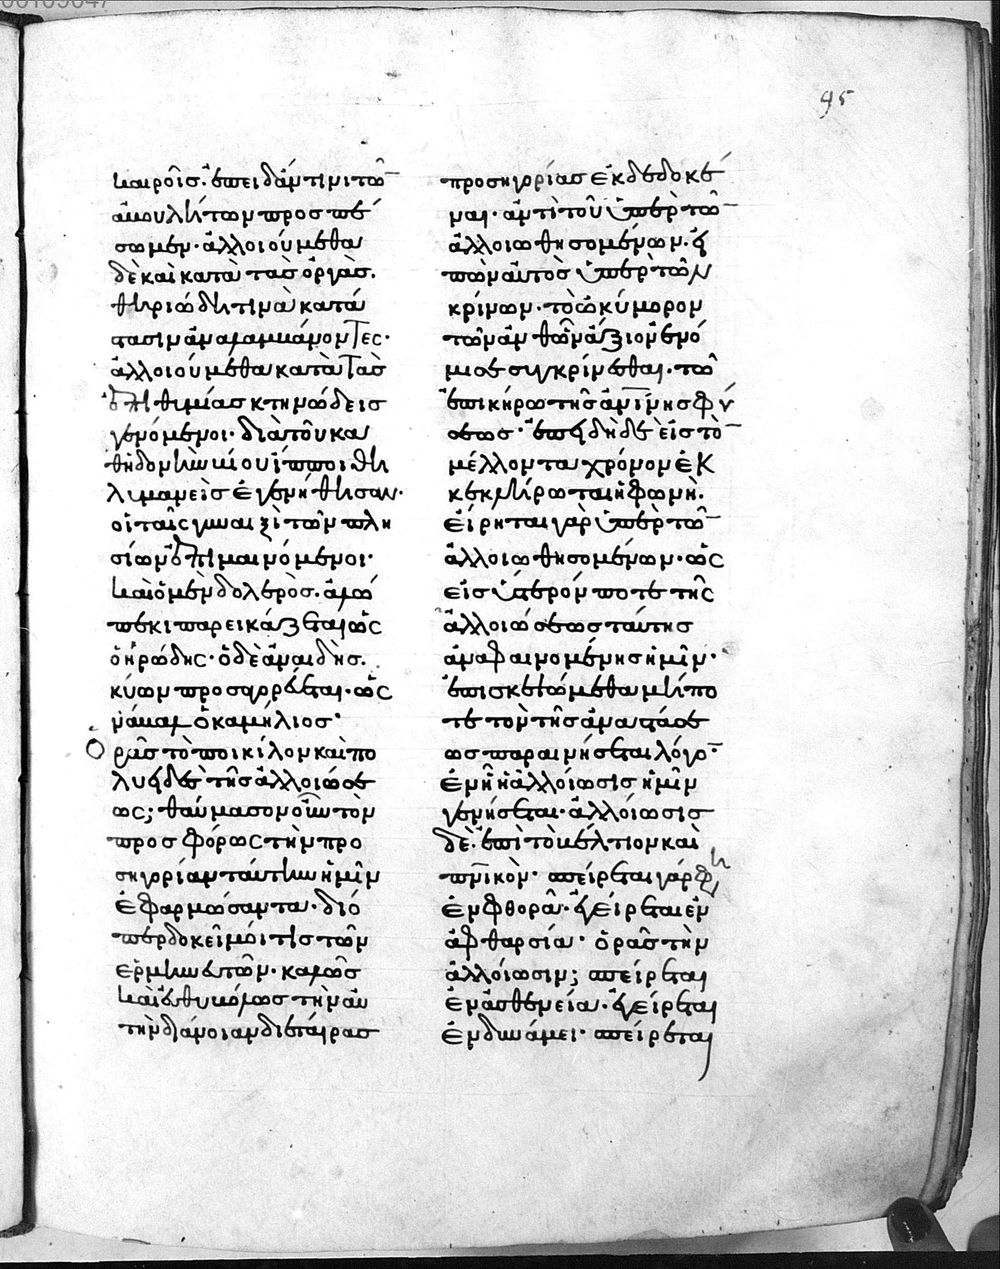 95
καιροῖς. ἐπειδάν τινι τῶ̅
ἀβουλήτων προσπέ
σωμεν· ἀλλοιούμεθα
δὲ καὶ κατὰ τὰς ὀργὰς.
θηριώδη τινὰ κατά
στασιν ἀναλαμβάνοντες·
ἀλλοιούμεθα κατὰ τὰς
ἐπιθυμίας κτηνώδεις
γενόμενοι· διὰ τοῦ κα
θηδονὴν βίου ἵπποι θη
λυμανεῖς ἐγενήθησαν·
οἱ ταῖς γυναιξὶ τῶν πλη
σίων ἐπιμαινόμενοι·
καὶ ὁ μὲν δολερὸς. ἀλώ
πεκι παρεικάζεται ὡς
ὁ ἡρώδης· ὁ δὲ ἀναιδὴς.
κύων προσαγορεύεται· ὡς
νάβαλ ὁ καρμήλιος·
ὁρᾶς τὸ ποικίλον καὶ πο
λυειδὲς τῆς ἀλλοιώσε
ως; θαύμασον οὖν τὸν
προσφόρως τὴν προ
σηγορίαν ταύτην ἡμῖν
ἐφαρμώσαντα· διό
περ δοκεῖ μοί τις τῶν
ἑρμηνευτῶν· καλῶς
καὶ εὐθυβόλως τὴν αὐ
τὴν διάνοιαν δι ἑτάιρας
προσηγορίας ἐκδεδοκέ
ναι· ἀντὶ τοῦ ὑπὲρ τῶ̅
ἀλλοιωθησομένων· εἰ
πὼν αὐτὸς ὑπὲρ τῶν
κρίνων· τὸ ὠκύμορον
τῶν ἀνθῶν ἄξιον ἐνό
μισε συγκρίνεσθαι· τῶ
ἐπικήρω τῆς ἀν̅ι̅νης φύ
σεως· ἐπειδὴ δὲ εἰς τὸ̅
μέλλοντα χρόνον ἐκ
κεκλήρωται ἡ φωνὴ.
εἴρηται γὰρ ὑπὲρ τῶ̅
ἀλλοιωθησομένων· ὡς
εἰς ὕστερόν ποτε τῆς
ἀλλοιώσεως ταύτης
ἀναφαινομένης ἡμῖν·
ἐπισκεψώμεθα μήπο
τε τὸν τῆς ἀναστάσε
ως παραινήσεται λόγο̅
ἐν ἧ ἡ ἀλλοίωσις ἡμῖν
γενήσεται· ἀλλοίωσις
δὲ· ἐπὶ τὸ βέλτιον καὶ
πν̅ικὸν· σπείρεται γάρ φη
ἐν φθορᾶ· ἐγείρεται ἐν
ἀφθαρσία· ὁρᾶς τὴν
ἀλλοίωσιν; σπείρεται
ἐν ἀσθενεία· ἐγείρεται
ἐν δυνάμει· σπείρεται